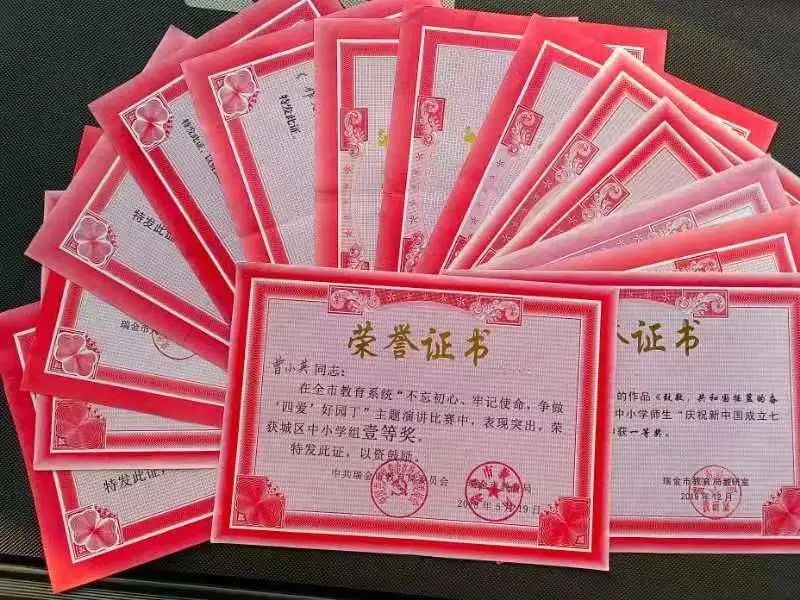 荣誉证书
曾小英同志：
在全市教育系统“不忘初心、牢记使命，争做
‘四爱’好园丁”主题演讲比赛中，表现突出，荣
获城区中小学组壹等奖。
特发此证，以资鼓励。
中共瑞金市教育局委员会
瑞金市教育局
证书
的作品《致敬，共和国
中小学师生“庆祝新中国成立七
获一等奖。
瑞金市教育局教研室
2019年12月
特发此证。
特发此证，以资
特发此证
瑞金市
特发此证